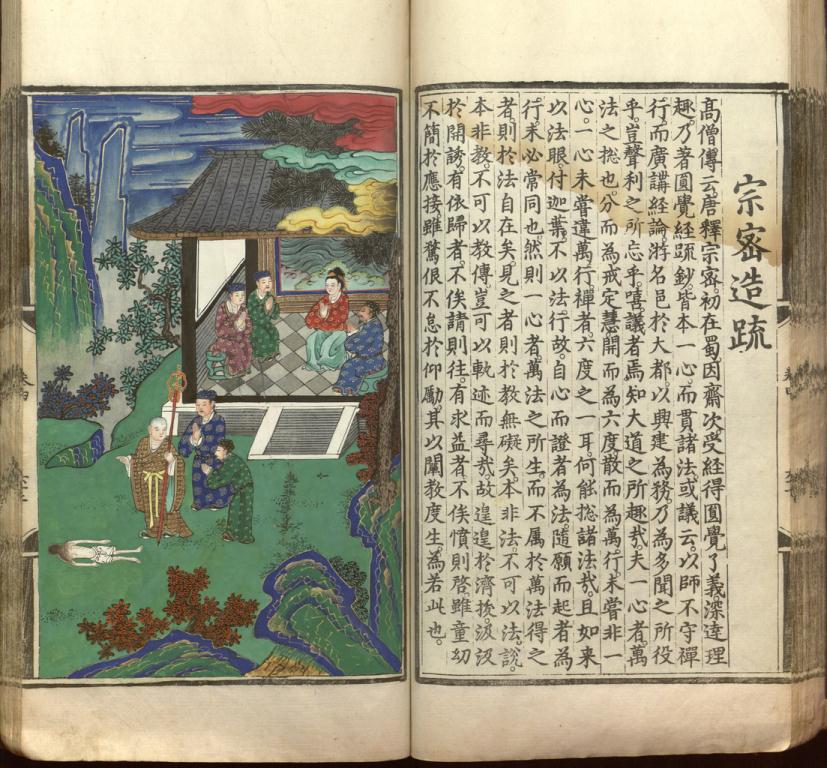 宗宻造疏
高僧傳云。唐釋宗密。初在蜀。因齋次。受經。得圓覺了義。深逹理
趣。乃著圓覺經疏鈔。皆本一心。而貫諸法。或議云。以師不守禪
行。而廣講經論。游名邑於大都。以興建為務。乃為多聞之所役
乎。豈聲利之所忘乎。嘻。議者焉知大道之所趣哉。夫一心者萬
法之揔也。分而為戒定慧。開而為六度。散而為萬行。未嘗非一
心。一心未嘗違萬行。禪者六度之一耳。何能揔諸法哉。且如来
以法眼付迦葉。不以法行。故。自心而證者為法。隨願而起者為
行。未必常同也。然則一心者。萬法之所生。而不属於萬法。得之
者則於法自在矣。見之者則於教無礙矣。本非法。不可以法說。
本非教。不可以教傳。豈可以軌迹而尋哉。故遑遑於濟拔。汲汲
於開誘。有依歸者。不俟請則往。有求益者。不俟憤則啓。雖童幼
不簡於應接。雖驁佷不怠於仰勵。其以闡教度生。為若此也。